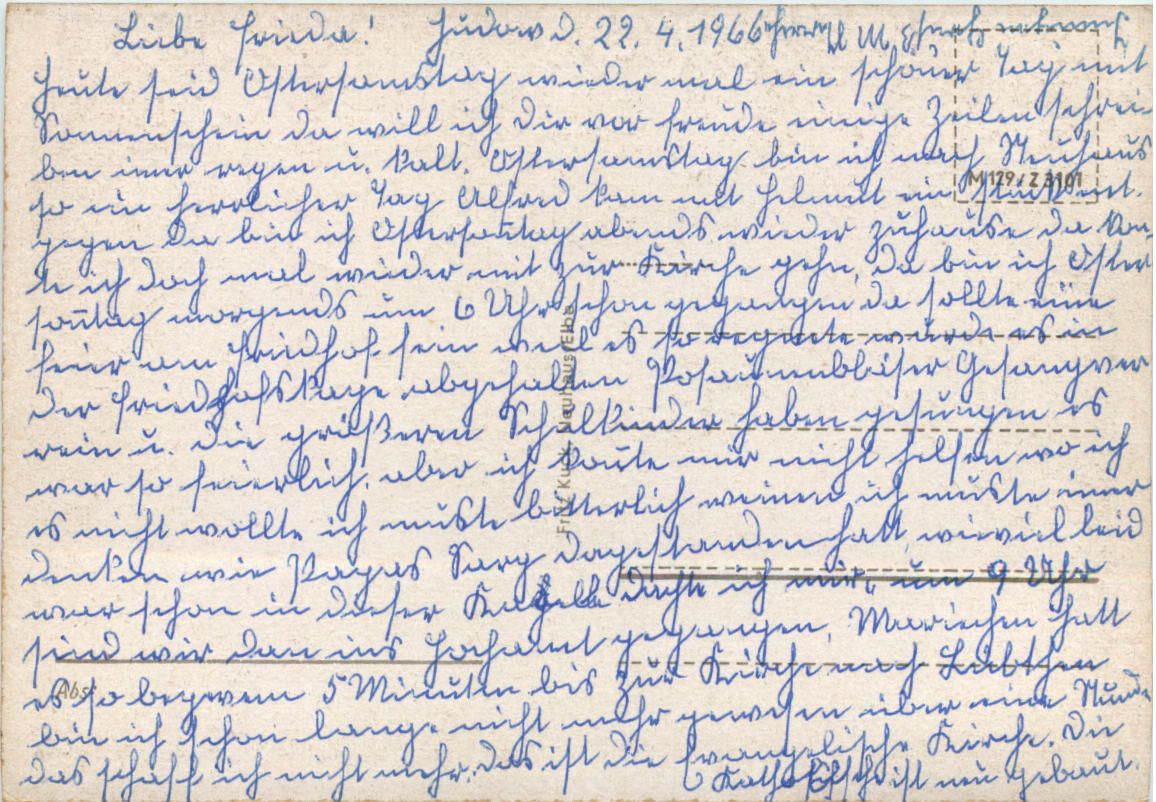 Liebe Frieda! Hudow d. 22. 4. 1966
Heute seid Ostersamstag wieder mal ein schöner Tag mit
Sonnenschein da will ich Dir vor Freude einige Zeilen schrei-
ben imer regen u. kalt. Ostersamstag bin ich nach Neuhaus
M 129 / Z 3101
so ein herrlicher Tag Alfred kam mit Helmutt ein Stück ent.
gegen da bin ich Ostersontag abends wieder zuhause da kon-
te ich doch mal wieder mit zur Kirche gehn, da bin ich Oster
sontag morgends um 6 Uhr schon gegangen da sollte eine
feier am Friedhof sein weil es so regnete wurde es in
der Friedhofskape abgehalten Posaunenbläser Gesangver
rein u. die größeren Schulkinder haben gesungen es
war so feierlich, aber ich konte mir nicht helfen wo ich
es nicht wollte ich müste bitterlich weinen ich müste imer
denken wie Papas Sarg dagestanden hatt, wieviel leid
war schon in dieser Kapelle dachte ich mir, um 9 Uhr
sind wir dan ins Hochamt gegangen, Mariechen hatt
es so beqwem 5 Minuten bis zur Kirche nach Lübtheen
Abs.
bin ich schon lange nicht mehr gewesen über eine Stunde
das schaff ich nicht mehr, das ist die Evangelische Kirche. Die
Katholische ist neu gebaut.
Fritz Kück, Neuhaus/Elbe